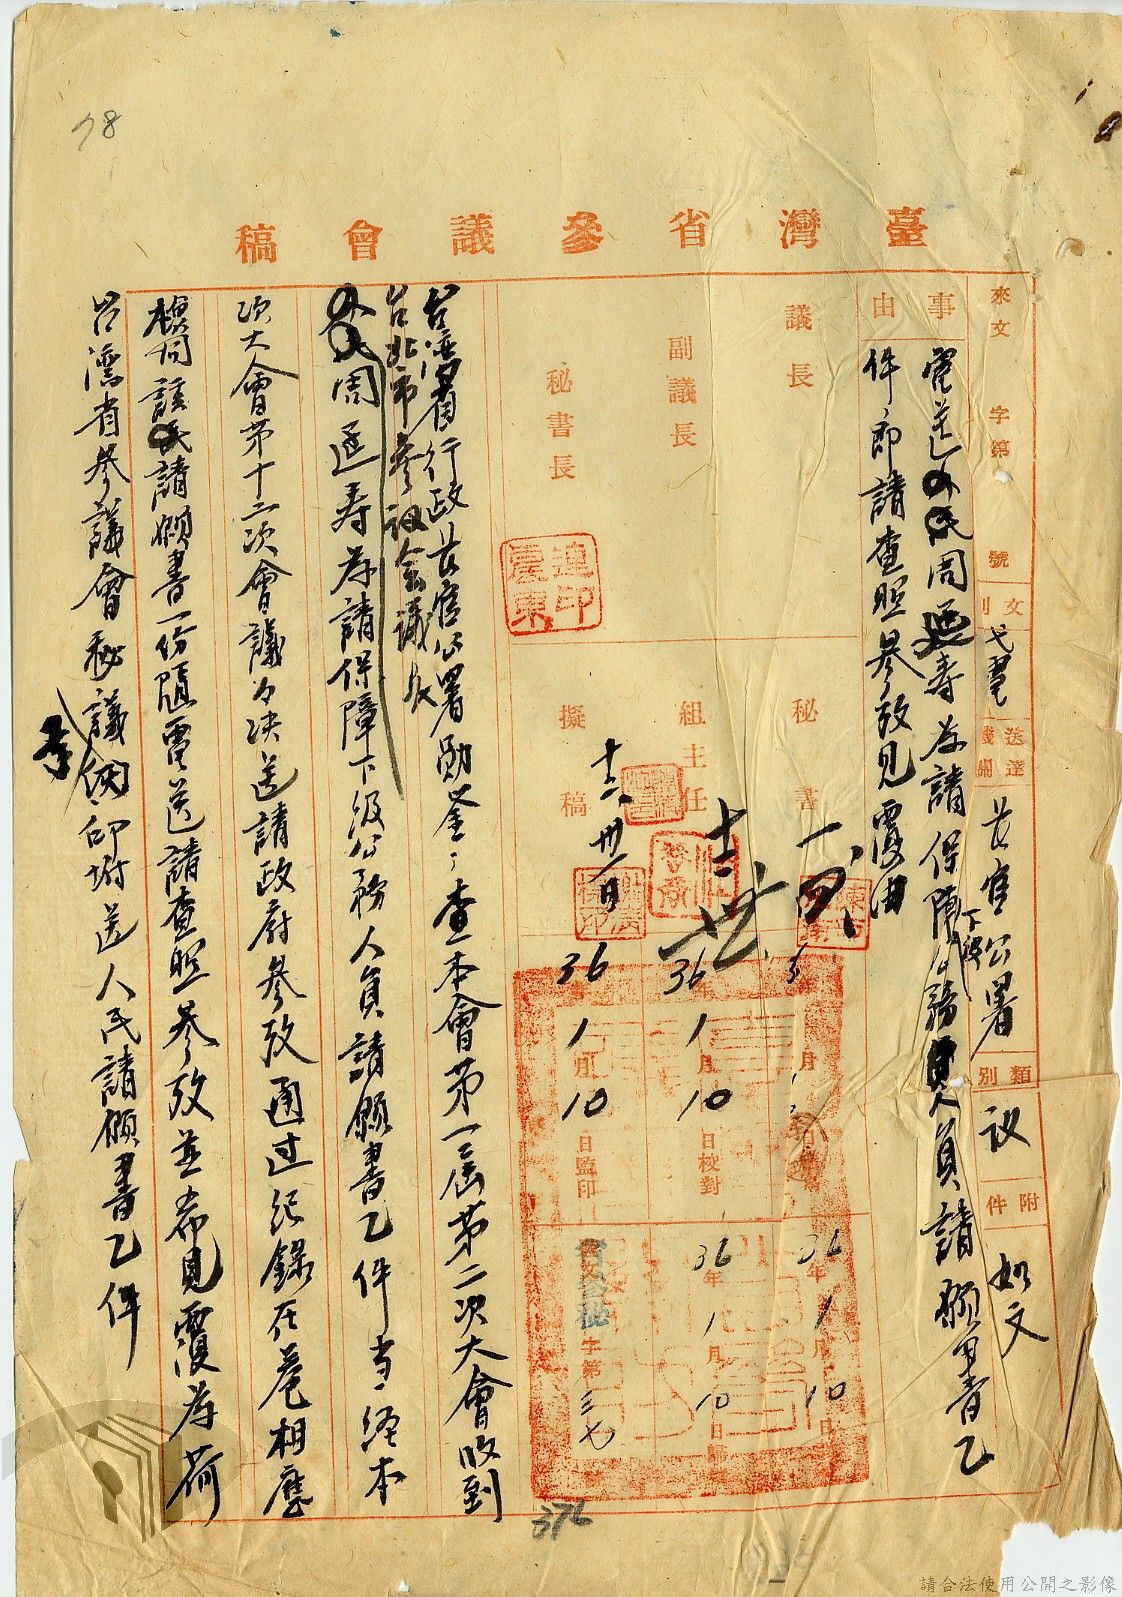 78
臺灣省參議會稿
來文 字第 號
文別 代電
送達機關 長官公署
類別 议
附件 如文
事由
電送周延壽為請保障下級公務人員請願書乙
件即請查照參攷見覆由
議長
副議長
秘書長
連震東印
秘書
組主任
擬稿
十二 卅一日
36年1月10日監印
36年1月10日校對
36年1月10日
36年1月10日歸
字第三七
台灣省行政長官公署勛鑒：查本會第一屆第二次大會收到
台北市參議會議長
周延寿為請保障下級公務人員請願書乙件当経本
次大會第十二次會議公決送請政府參攷通过紀錄在卷相應
檢同該請願書一份隨電送請查照參攷並希見覆為荷
台灣省參議會秘議 印附送人民請願書乙件
376
請合法使用公開之影像